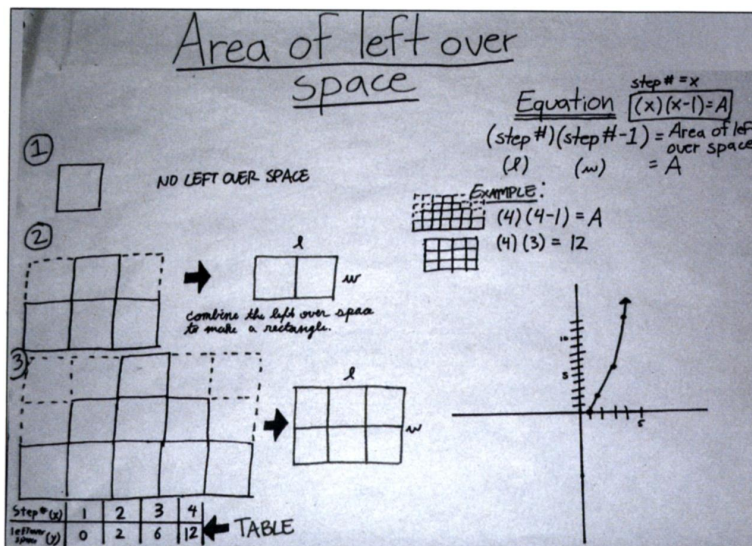 Area of left over
space
step# = x
Equation (x)(x-1)=A
(step#)(step#-1) = Area of left
over space
(l) (w) = A
1
NO LEFT OVER SPACE
EXAMPLE:
(4)(4-1) = A
(4)(3) = 12
2
l
w
combine the left over space
to make a rectangle.
3
l
w
10
5
5
Step#(x) 1 2 3 4
leftover
space (y) 0 2 6 12
TABLE